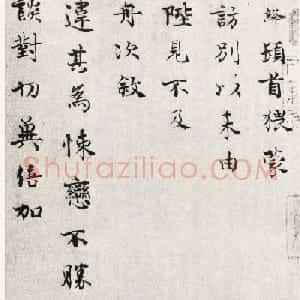 頓首猥蒙
訪別以未由
陛見不及
再次敘
違其為悚戀不勝
談對切冀倍加
Shufaziliao.com